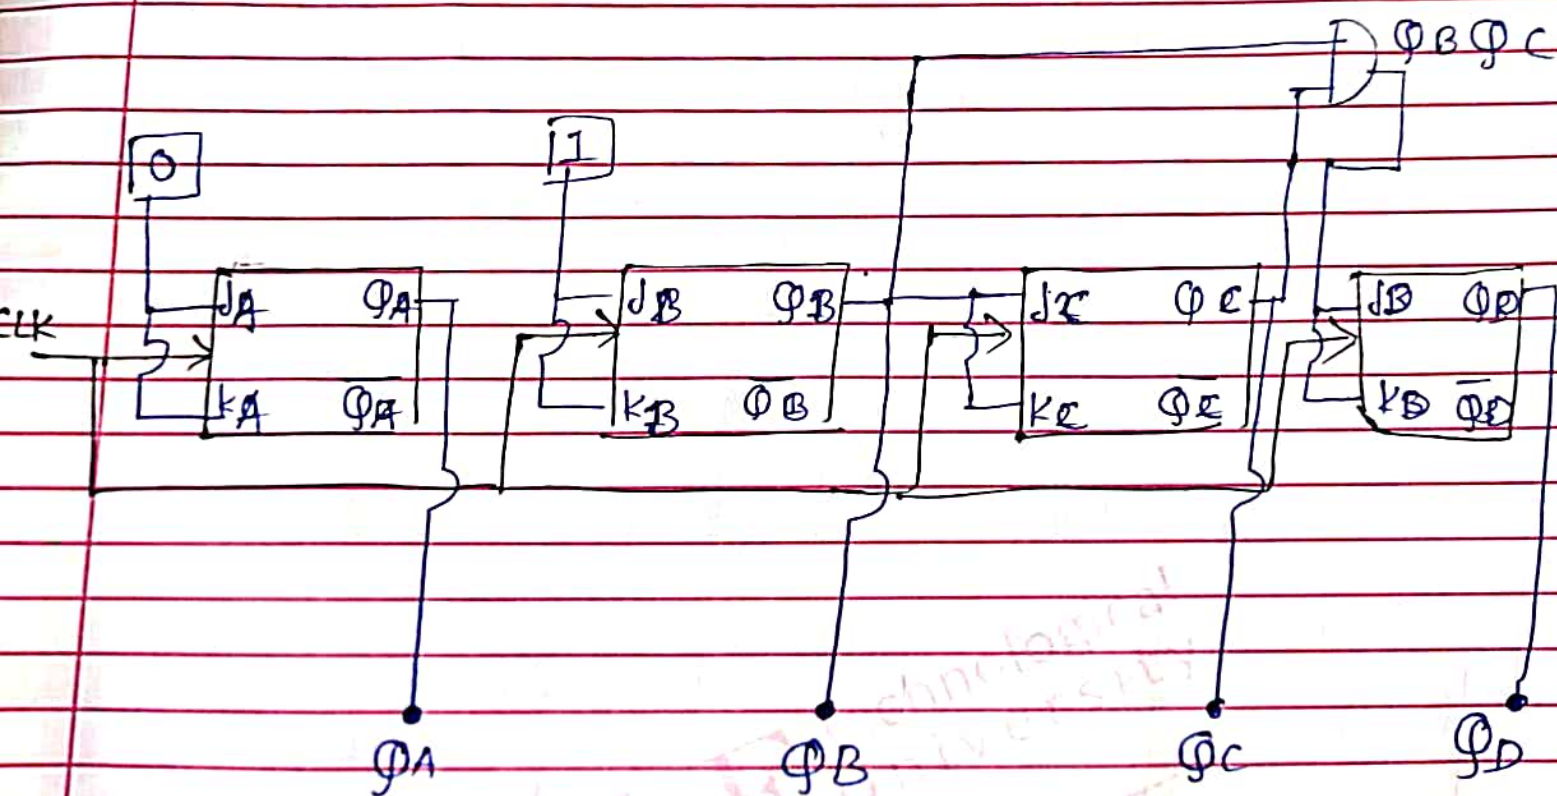 QB QC
0
1
CLK
JA QA
KA Q̅A̅
JB QB
KB Q̅B̅
JC QC
KC Q̅C̅
JD QD
KD Q̅D̅
QA
QB
QC
QD